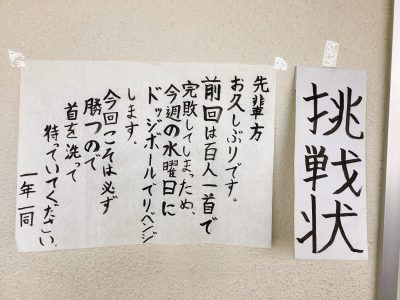 挑戦状
先輩方
お久しぶりです。
前回は百人一首で
完敗してしまったため、
今週の水曜日に
ドッジボールでリベンジ
します。
今回こそは必ず
勝つので
首を洗って
待っていてください。
一年一同